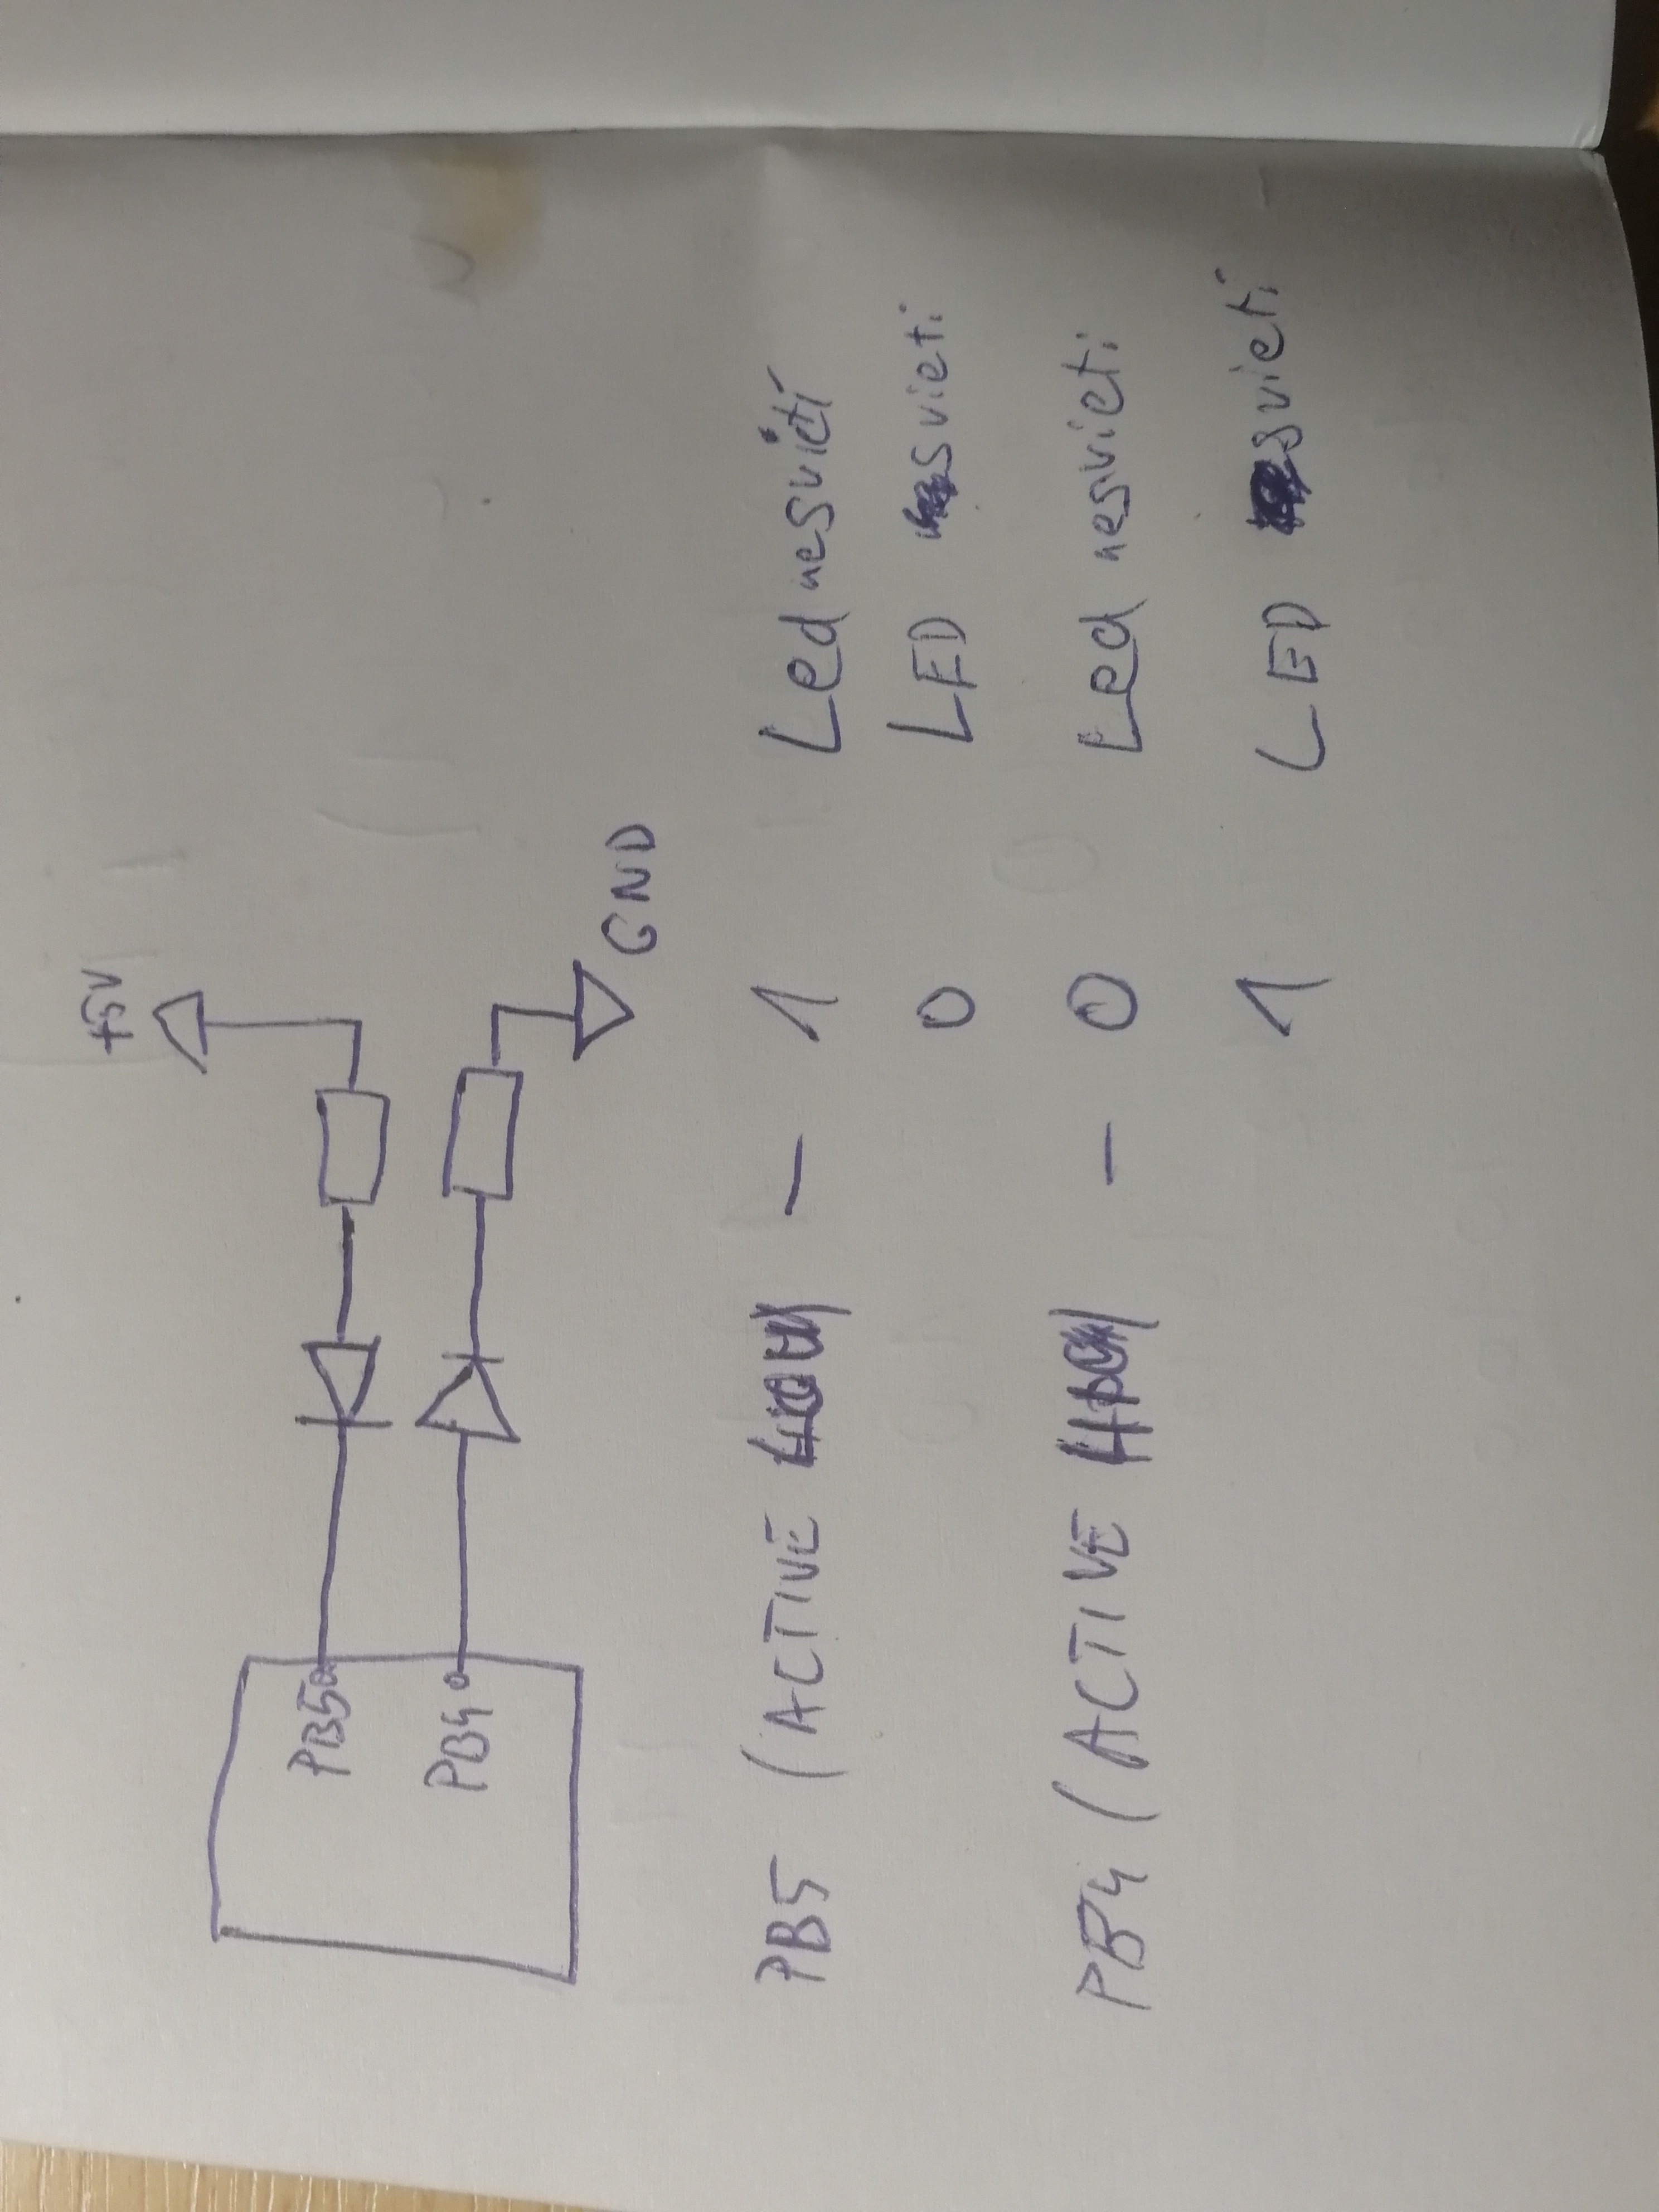 +5V
PB5
PB4
GND
PB5 (ACTIVE — 1 Led nesvieti
0 LED svieti
PB4 (ACTIVE — 0 Led nesvieti
1 LED svieti